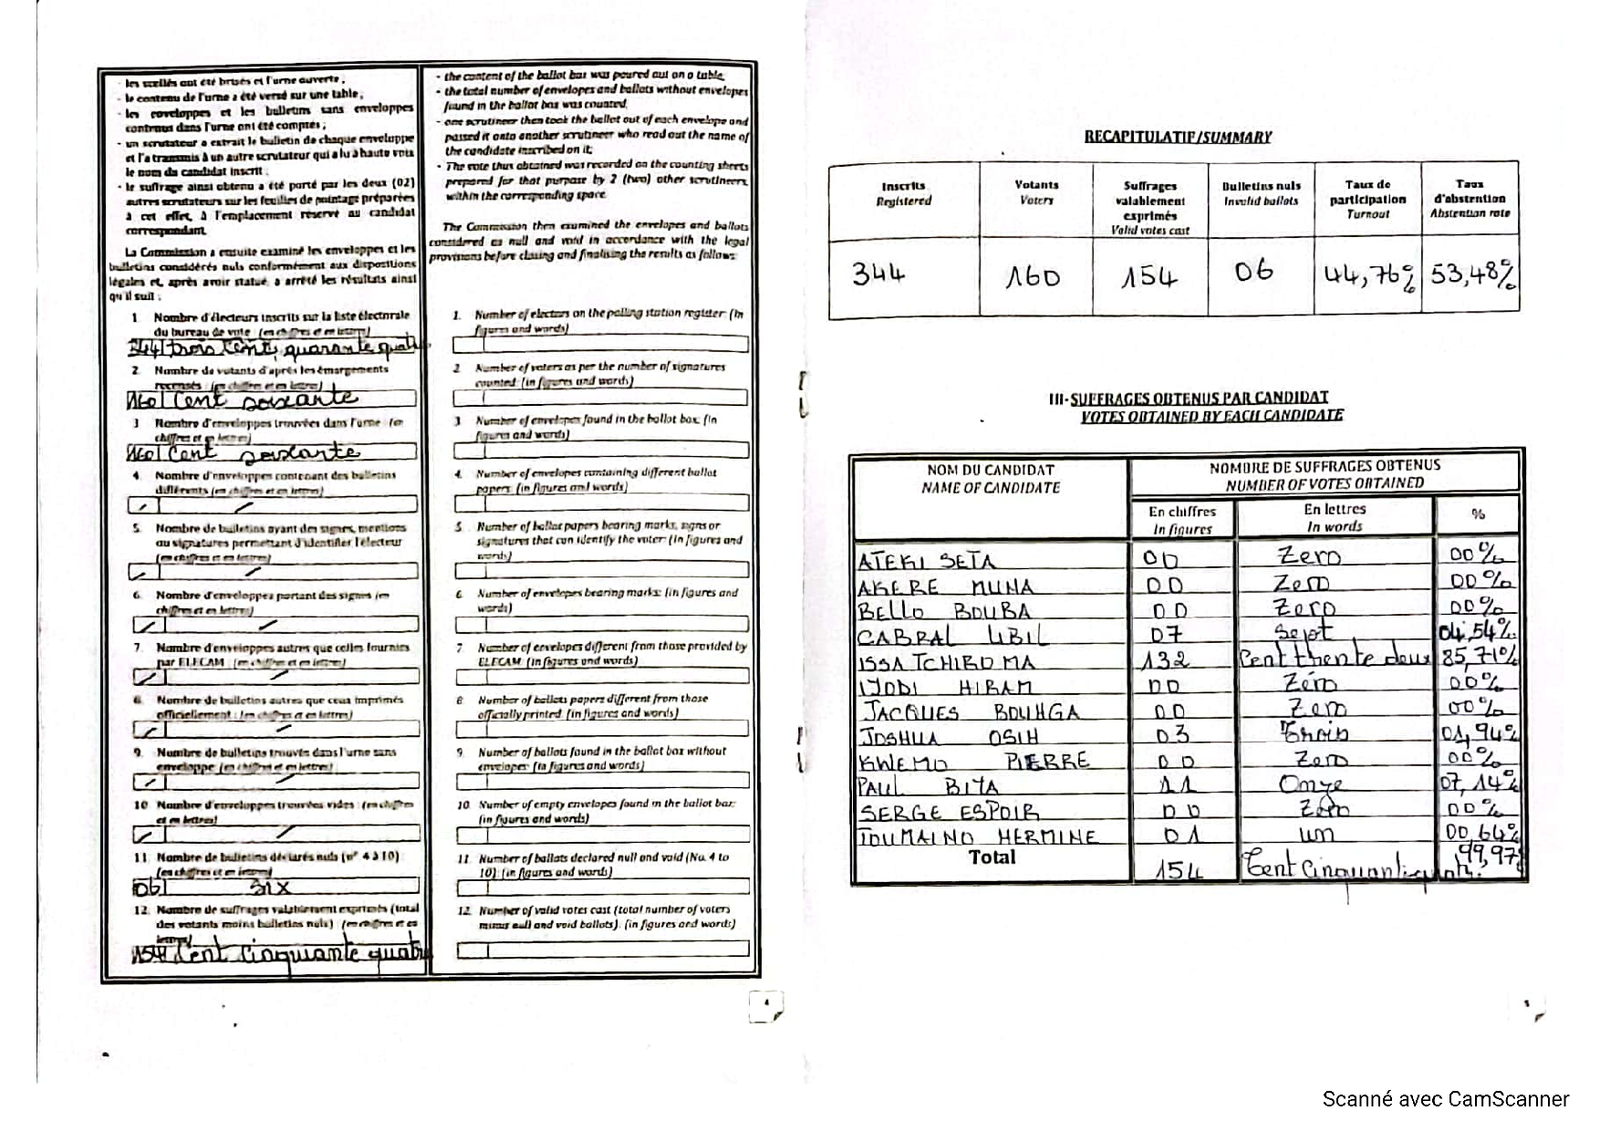 - les scellés ont été brisés et l'urne ouverte ;
- le contenu de l'urne a été versé sur une table ;
- les enveloppes et les bulletins sans enveloppes
contenus dans l'urne ont été comptés ;
- un scrutateur a extrait le bulletin de chaque enveloppe
et l'a transmis à un autre scrutateur qui a lu à haute voix
le nom du candidat inscrit ;
- le suffrage ainsi obtenu a été porté par les deux (02)
autres scrutateurs sur les feuilles de pointage préparées
à cet effet, à l'emplacement réservé au candidat
correspondant.
La Commission a ensuite examiné les enveloppes et les
bulletins considérés nuls conformément aux dispositions
légales et, après avoir statué, a arrêté les résultats ainsi
qu'il suit :
1. Nombre d'électeurs inscrits sur la liste électorale
du bureau de vote (en chiffres et en lettres)
344 trois cent quarante quatre
2. Nombre de votants d'après les émargements
recensés (en chiffres et en lettres)
160 Cent soixante
3 Nombre d'enveloppes trouvées dans l'urne (en
chiffres et en lettres)
160 Cent soixante
4. Nombre d'enveloppes contenant des bulletins
différents (en chiffres et en lettres)
5. Nombre de bulletins ayant des signes, mentions
ou signatures permettant d'identifier l'électeur
(en chiffres et en lettres)
6. Nombre d'enveloppes portant des signes (en
chiffres et en lettres)
7. Nombre d'enveloppes autres que celles fournies
par ELECAM (en chiffres et en lettres)
8. Nombre de bulletins autres que ceux imprimés
officiellement (en chiffres et en lettres)
9. Nombre de bulletins trouvés dans l'urne sans
enveloppe (en chiffres et en lettres)
10 Nombre d'enveloppes trouvées vides (en chiffres
et en lettres)
11. Nombre de bulletins déclarés nuls (n° 4 à 10)
(en chiffres et en lettres)
06 six
12. Nombre de suffrages valablement exprimés (total
des votants moins bulletins nuls) (en chiffres et en
lettres)
154 Cent cinquante quatre
- the content of the ballot box was poured out on a table,
- the total number of envelopes and ballots without envelopes
found in the ballot box was counted,
- one scrutineer then took the ballot out of each envelope and
passed it onto another scrutineer who read out the name of
the candidate inscribed on it;
- The vote thus obtained was recorded on the counting sheets
prepared for that purpose by 2 (two) other scrutineers,
within the corresponding space.
The Commission then examined the envelopes and ballots
considered as null and void in accordance with the legal
provisions before closing and finalising the results as follows:
1. Number of electors on the polling station register: (in
figures and words)
2 Number of voters as per the number of signatures
counted: (in figures and words)
3 Number of envelopes found in the ballot box: (in
figures and words)
4. Number of envelopes containing different ballot
papers: (in figures and words)
5 Number of ballot papers bearing marks, signs or
signatures that can identify the voter: (in figures and
words)
6 Number of envelopes bearing marks: (in figures and
words)
7 Number of envelopes different from those provided by
ELECAM (in figures and words)
8 Number of ballots papers different from those
officially printed: (in figures and words)
9. Number of ballots found in the ballot box without
envelopes: (in figures and words)
10. Number of empty envelopes found in the ballot box:
(in figures and words)
11. Number of ballots declared null and void (No. 4 to
10): (in figures and words)
12. Number of valid votes cast (total number of voters
minus null and void ballots): (in figures and words)
4
RECAPITULATIF/SUMMARY
Inscrits Registered | Votants Voters | Suffrages valablement exprimés Valid votes cast | Bulletins nuls Invalid ballots | Taux de participation Turnout | Taux d'abstention Abstention rate
344 160 154 06 44,76% 53,48%
III- SUFFRAGES OBTENUS PAR CANDIDAT
VOTES OBTAINED BY EACH CANDIDATE
NOM DU CANDIDAT NOMBRE DE SUFFRAGES OBTENUS
NAME OF CANDIDATE NUMBER OF VOTES OBTAINED
En chiffres En lettres %
In figures In words
ATEKI SETA 00 Zero 00%
AKERE MUNA 00 Zero 00%
BELLO BOUBA 00 Zero 00%
CABRAL LIBII 07 Sept 04,54%
ISSA TCHIROMA 132 Cent thente deux 85,71%
IYODI HIRAM 00 Zéro 00%
JACQUES BOUHGA 00 Zero 00%
JOSHUA OSIH 03 Trois 01,94%
KWEMO PIERRE 00 Zero 00%
PAUL BIYA 11 Onze 07,14%
SERGE ESPOIR 00 Zero 00%
TOUMAINO HERMINE 01 un 00,64%
Total 154 Cent cinquante quatre 99,97%
Scanné avec CamScanner